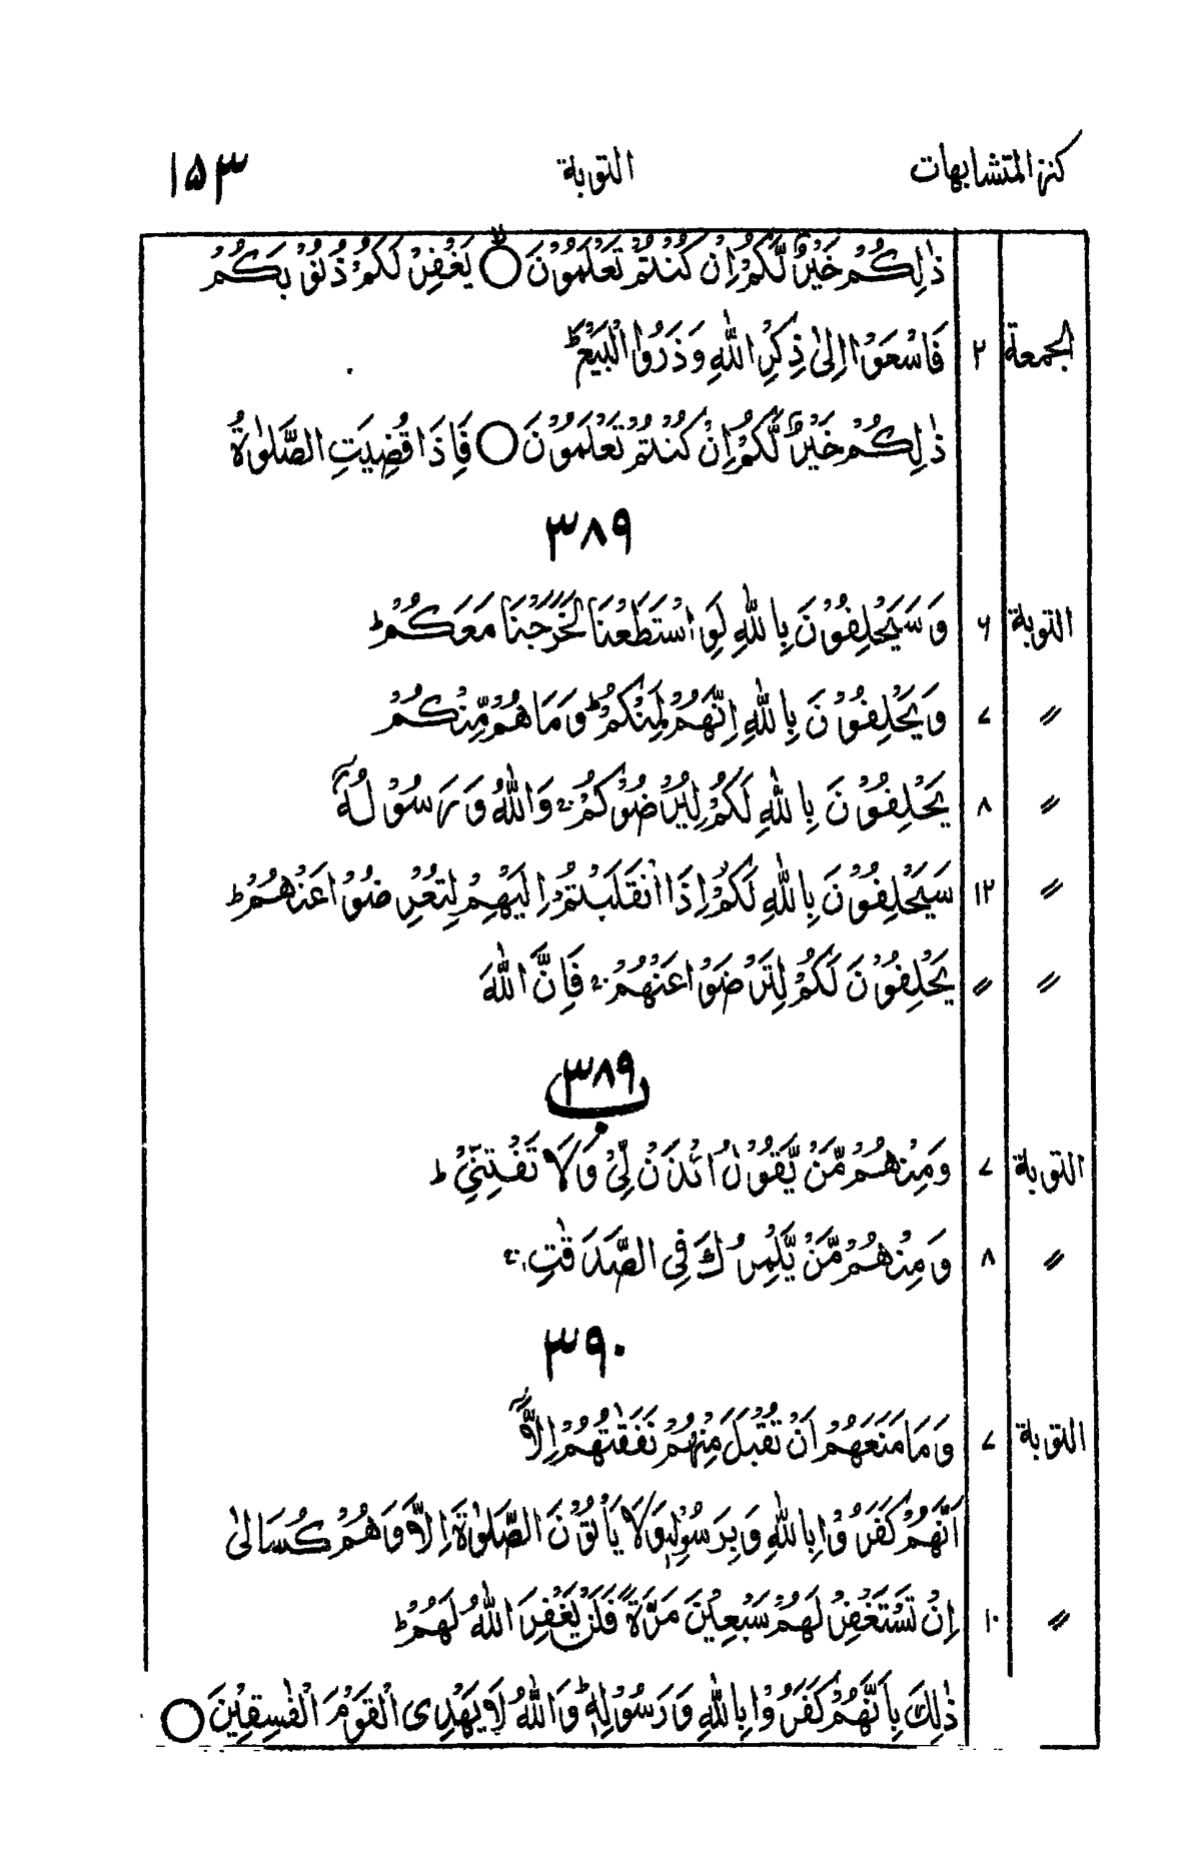 كنز المتشابهات التوبة ١٥٣
ذٰلِكُمْ خَيْرٌ لَّكُمْ اِنْ كُنْتُمْ تَعْلَمُوْنَ ○ۙ يَغْفِرْ لَكُمْ ذُنُوْبَكُمْ
الجمعة ٢ فَاسْعَوْا اِلٰى ذِكْرِ اللّٰهِ وَذَرُوا الْبَيْعَ ؕ
ذٰلِكُمْ خَيْرٌ لَّكُمْ اِنْ كُنْتُمْ تَعْلَمُوْنَ ○ فَاِذَا قُضِيَتِ الصَّلٰوةُ
٣٨٩
التوبة ۶ وَسَيَحْلِفُوْنَ بِاللّٰهِ لَوِ اسْتَطَعْنَا لَخَرَجْنَا مَعَكُمْ ؕ
〃 ۷ وَيَحْلِفُوْنَ بِاللّٰهِ اِنَّهُمْ لَمِنْكُمْ ؕ وَمَا هُمْ مِّنْكُمْ
〃 ٨ يَحْلِفُوْنَ بِاللّٰهِ لَكُمْ لِيُرْضُوْكُمْ ۚ وَاللّٰهُ وَرَسُوْلُهٗٓ
〃 ١٢ سَيَحْلِفُوْنَ بِاللّٰهِ لَكُمْ اِذَا انْقَلَبْتُمْ اِلَيْهِمْ لِتُعْرِضُوْا عَنْهُمْ ؕ
〃 〃 يَحْلِفُوْنَ لَكُمْ لِتَرْضَوْا عَنْهُمْ ۚ فَاِنَّ اللّٰهَ
٣٨٩ ب
التوبة ۷ وَمِنْهُمْ مَّنْ يَّقُوْلُ ائْذَنْ لِّيْ وَلَا تَفْتِنِّيْ ؕ
〃 ٨ وَمِنْهُمْ مَّنْ يَّلْمِزُكَ فِي الصَّدَقٰتِ ۚ
٣٩٠
التوبة ۷ وَمَا مَنَعَهُمْ اَنْ تُقْبَلَ مِنْهُمْ نَفَقٰتُهُمْ اِلَّآ
اَنَّهُمْ كَفَرُوْا بِاللّٰهِ وَبِرَسُوْلِهٖ وَلَا يَاْتُوْنَ الصَّلٰوةَ اِلَّا وَهُمْ كُسَالٰى
〃 ١٠ اِنْ تَسْتَغْفِرْ لَهُمْ سَبْعِيْنَ مَرَّةً فَلَنْ يَّغْفِرَ اللّٰهُ لَهُمْ ؕ
ذٰلِكَ بِاَنَّهُمْ كَفَرُوْا بِاللّٰهِ وَرَسُوْلِهٖ ؕ وَاللّٰهُ لَا يَهْدِى الْقَوْمَ الْفٰسِقِيْنَ ○